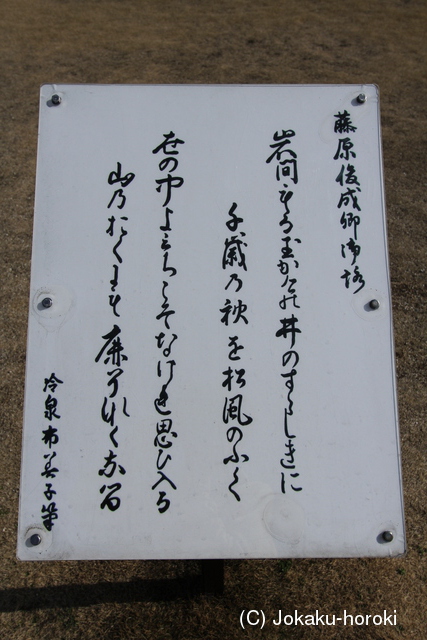 藤原俊成卿御詠
岩間もる玉かけの井のすゝしきに
千歳乃秋を松風のふく
世の中よみちこそなけれ思ひ入る
山乃おくにも鹿そなくなる
冷泉布美子筆
(C) Jokaku-horoki